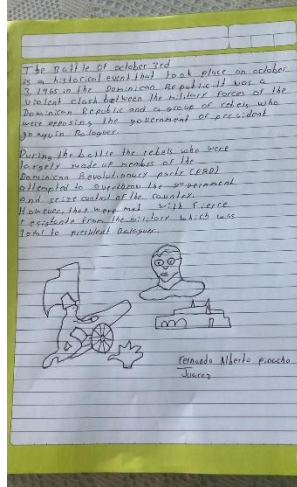 The Battle of october 3rd
is a historical event that took place on october
3, 1965 in the Dominican Republic it was a
violent clash between the military forces of the
Dominican Republic and a group of rebels who
were opposing the government of president
Joaquin Balaguer.
During the battle the rebels who were
largely made up members of the
Dominican Revolutionary party (PRD)
attempted to overthrow the government
and seize control of the country.
However, they were met with fierce
resistance from the military which was
loyal to president Balaguer.
Fernando Alberto Pinocho
Juarez